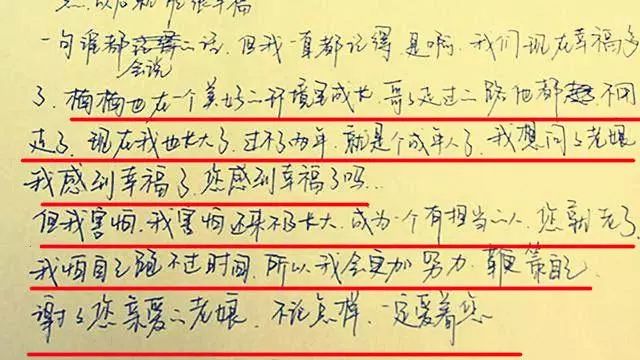 以后就能很幸福
一句谁都会说的话,但我一直都记得 是啊,我们现在幸福多
了,楠楠也在一个美好的环境里成长,哥哥走过的路他都不用
走了,现在我也长大了,过不了两年,就是个成年人了,我想问问老娘
我感到幸福了,您感到幸福了吗...
但我害怕,我害怕还来不及长大,成为一个有担当的人,您就老了,
我怕自己跑不过时间,所以我会更加努力,鞭策自己
谢谢您亲爱的老娘,不论怎样,一定爱着您